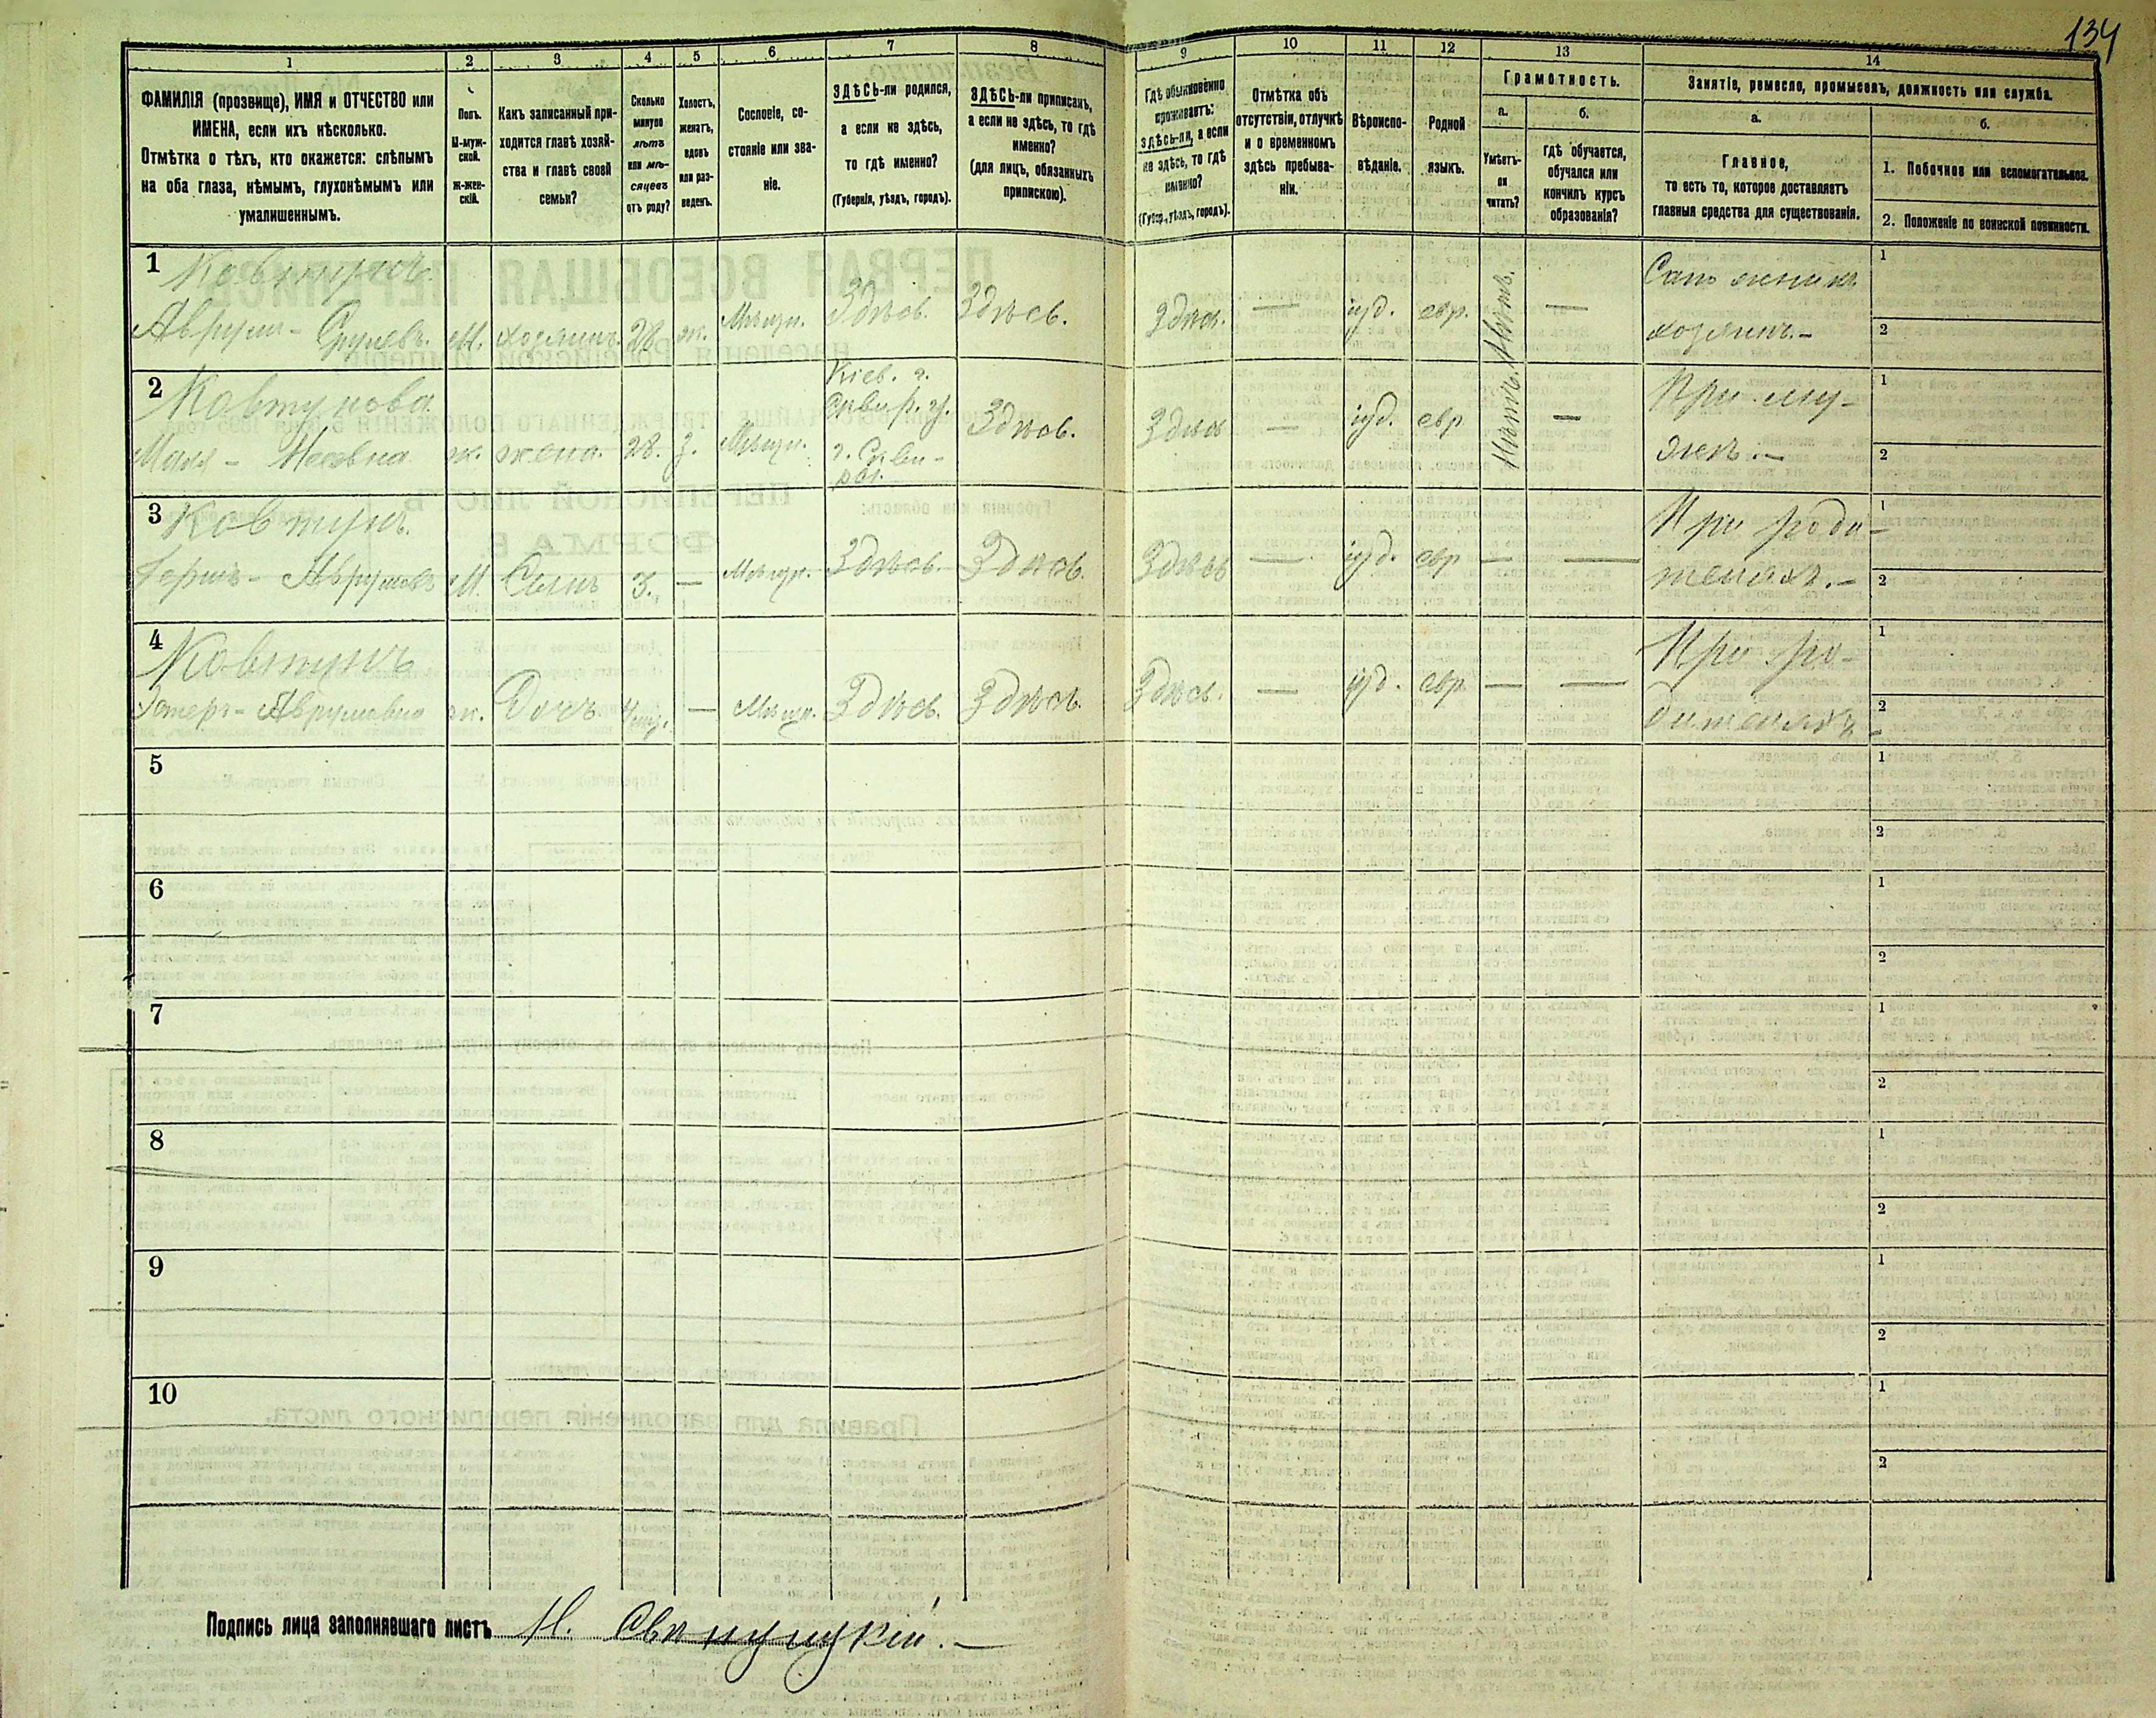 134
1 2 3 4 5 6 7 8 9 10 11 12 13 14
ФАМИЛІЯ (прозвище), ИМЯ и ОТЧЕСТВО или
ИМЕНА, если ихъ нѣсколько.
Отмѣтка о тѣхъ, кто окажется: слѣпымъ
на оба глаза, нѣмымъ, глухонѣмымъ или
умалишеннымъ.
Полъ.
М-муж-
ской.
Ж-жен-
скій.
Какъ записанный при-
ходится главѣ хозяй-
ства и главѣ своей
семьи?
Сколько
минуло
лѣтъ
или мѣ-
сяцевъ
отъ роду?
Холостъ,
женатъ,
вдовъ
или раз-
веденъ.
Сословіе, со-
стояніе или зва-
ніе.
ЗДѢСЬ-ли родился,
а если не здѣсь,
то гдѣ именно?
(Губернія, уѣздъ, городъ).
ЗДѢСЬ-ли приписанъ,
а если не здѣсь, то гдѣ
именно?
(для лицъ, обязанныхъ
припискою).
Гдѣ обыкновенно
проживаетъ:
здѣсь-ли, а если
не здѣсь, то гдѣ
именно?
(Губер., уѣздъ, городъ).
Отмѣтка объ
отсутствіи, отлучкѣ
и о временномъ
здѣсь пребыва-
ніи.
Вѣроиспо-
вѣданіе.
Родной
языкъ.
Грамотность.
а. б.
Умѣетъ-
ли
читать?
гдѣ обучается,
обучался или
кончилъ курсъ
образованія?
Занятіе, ремесло, промыселъ, должность или служба.
а. б.
Главное,
то есть то, которое доставляетъ
главныя средства для существованія.
1. Побочное или вспомогательное.
2. Положеніе по воинской повинности.
1 Ковтунъ Сапожникъ 1
Аврумъ - Сруловъ. М. хозяинъ. 28 ж. Мѣщан. Здѣсь. Здѣсь. Здѣсь. — іуд. евр. Нѣтъ. — хозяинъ. — 2
2 Ковтунова Кіев. г. При му- 1
Сквир. у.
Маля - ж. жена. 28. з. Мѣщан. г. Скви- Здѣсь. Здѣсь — іуд. евр Нѣтъ. — жѣ. — 2
ра.
3 Ковтунъ. При роди- 1
Гершъ - Аврумовъ М. Сынъ 3. — Мѣщан. Здѣсь. Здѣсь. Здѣсь — іуд. евр — — теляхъ. — 2
4 Ковтунъ При ро- 1
Эстеръ - Аврумовна ж. Дочь — Мѣщан. Здѣсь. Здѣсь. Здѣсь. — іуд. евр — — дителяхъ 2
5 1
2
6 1
2
7 1
2
8 1
2
9 1
2
10 1
2
Подпись лица заполнявшаго листъ